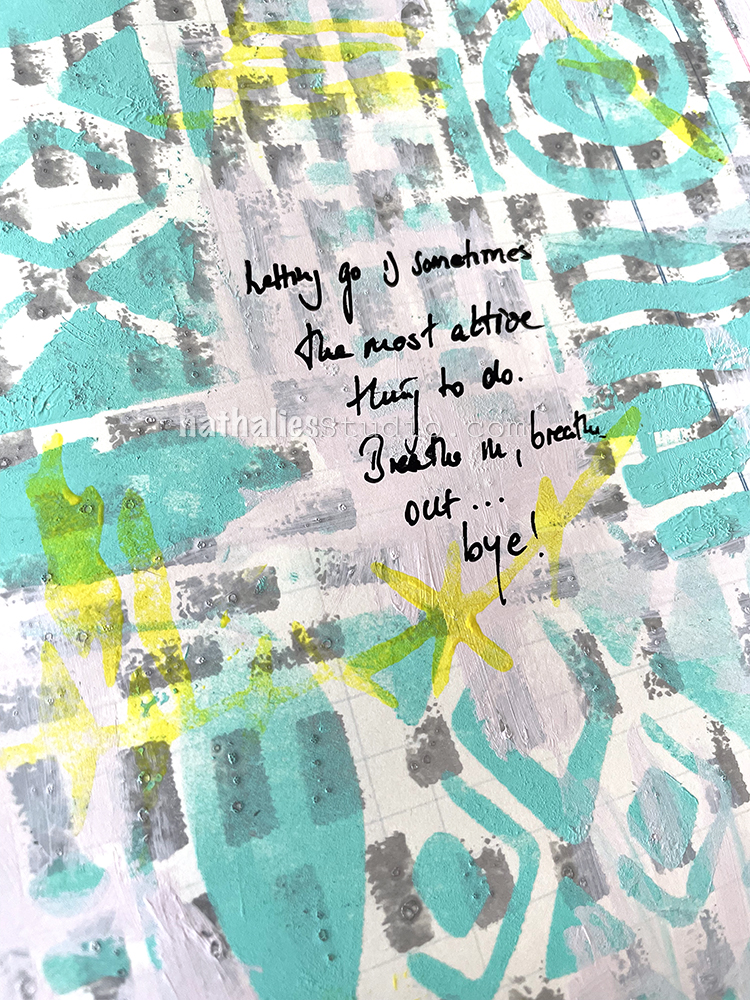 Letting go is sometimes
the most active
thing to do.
nathaliesstudio.com
Breathe in, breathe
out...
bye!